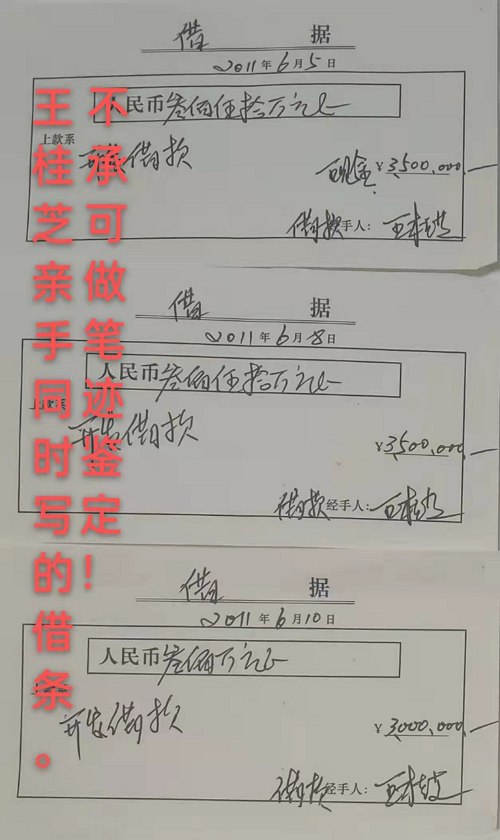 借 据
2011年6月5日
人民币叁佰伍拾万元正
上款系
开发借款
现金 ¥3500,000.
借款手人：王桂芝
借 据
2011年6月8日
人民币叁佰伍拾万元正
上款系
开发借款
¥3500,000.
借款经手人：王桂芝
借 据
2011年6月10日
人民币叁佰万元正
开发借款
¥3000,000.
借款经手人：王桂芝
不承可做笔迹鉴定！
王桂芝亲手同时写的借条。